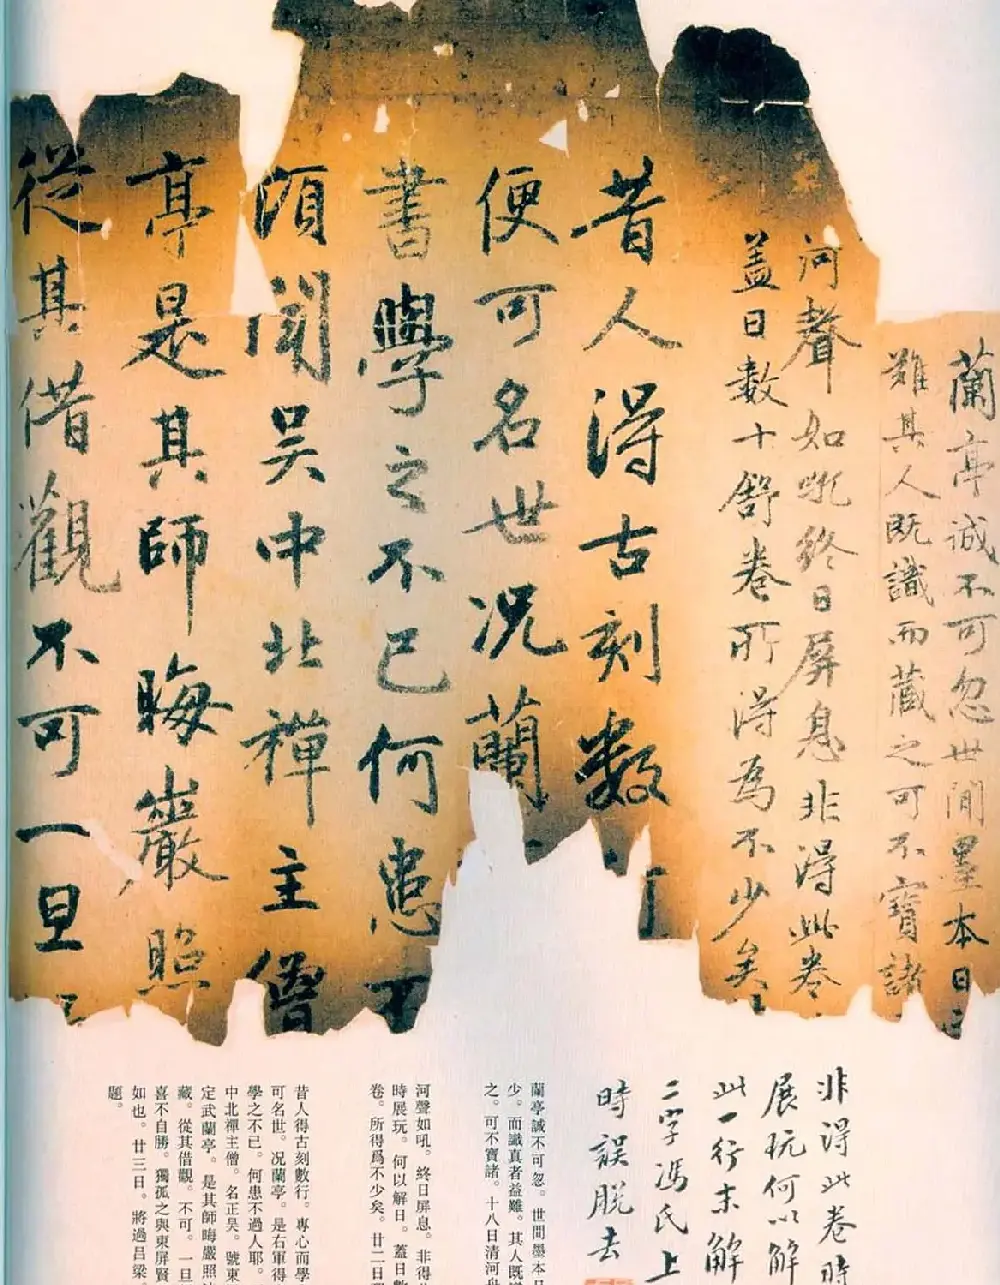 蘭亭誠不可忽世間墨本日
難其人既識而藏之可不寶諸
河聲如吼終日屏息非得此卷
蓋日數十舒卷所得為不少矣
昔人得古刻數
便可名世况蘭
書學之不已何患不
頃聞吴中北禪主僧
亭是其師晦巖照
從其借觀不可一旦
非得此卷時
展玩何以解
此一行末解
二字馮氏上
時誤脱去
蘭亭誠不可忽。世間墨本日
少。而識真者益難。其人既識
之。可不寶諸。十八日清河舟
河聲如吼。終日屏息。非得此
時展玩。何以解日。蓋日數
卷。所得爲不少矣。廿二日
昔人得古刻數行。專心而學
可名世。况蘭亭。是右軍得
學之不已。何患不過人耶。
中北禪主僧。名正吴。號東
定武蘭亭。是其師晦巖照
藏。從其借觀。不可。一旦
喜不自勝。獨孤之與東屏賢
如也。廿三日。將過吕梁。
題。